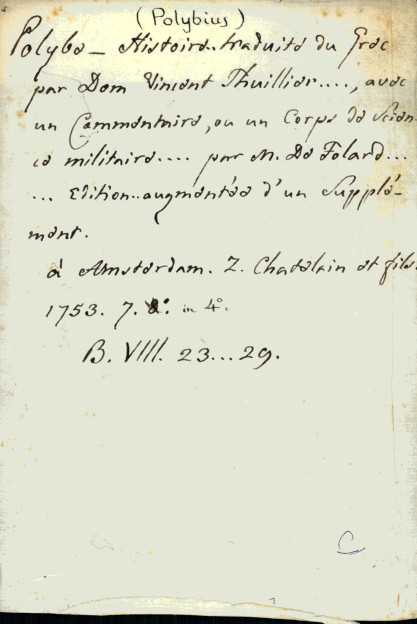 (Polybius)
Polybe — Histoire..traduite du Grec
par Dom Vincent Thuillier...., avec
un Commentaire, ou un Corps de Scien
ce militaire.... par M. De Folard...
... Edition..augmentée d'un Supplé-
ment.
à Amsterdam. Z. Chatelain et fils.
1753. 7. in 4°.
B. VIII. 23...29.
C